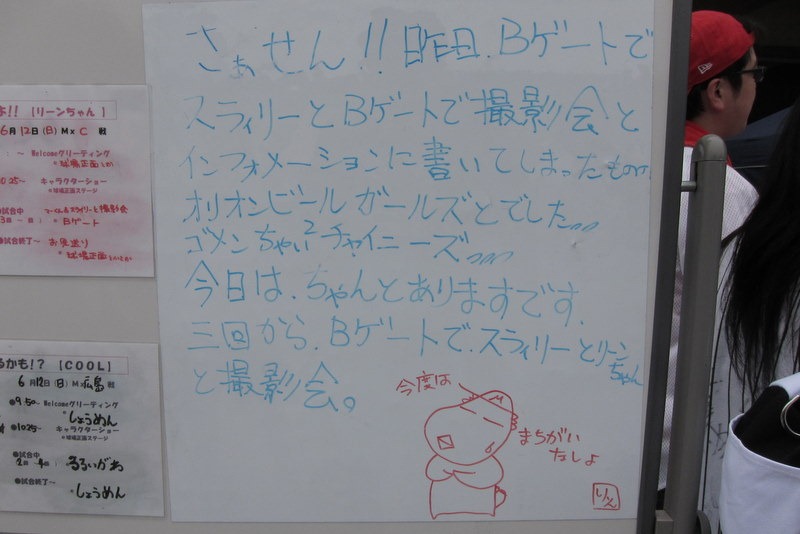 さぁせん!! 昨日、Bゲートで
スライリーとBゲートで撮影会と
インフォメーションに書いてしまったものの
オリオンビールガールズとでした
ゴメンちゃい²チャイニーズ
今日は、ちゃんとありますです。
三回から、Bゲートで、スライリーとリーンちゃん
と撮影会。
今度は
まちがい
なしよ
りえ
よ!! 【リーンちゃん】
6月12日(日) M×C 戦
: ～ Welcomeグリーティング
*球場正面
10:25～ キャラクターショー
*球場正面ステージ
●試合中
スライリーと撮影会
3回～ 回: *Bゲート
●試合終了～ お見送り
*球場正面
るかも!? 【COOL】
6月12日(日) M×広島 戦
●9:50～ Welcomeグリーティング
*しょうめん
●10:25～ キャラクターショー
*球場正面ステージ
●試合中
2回～4回: るるいがわ
●試合終了～
*しょうめん